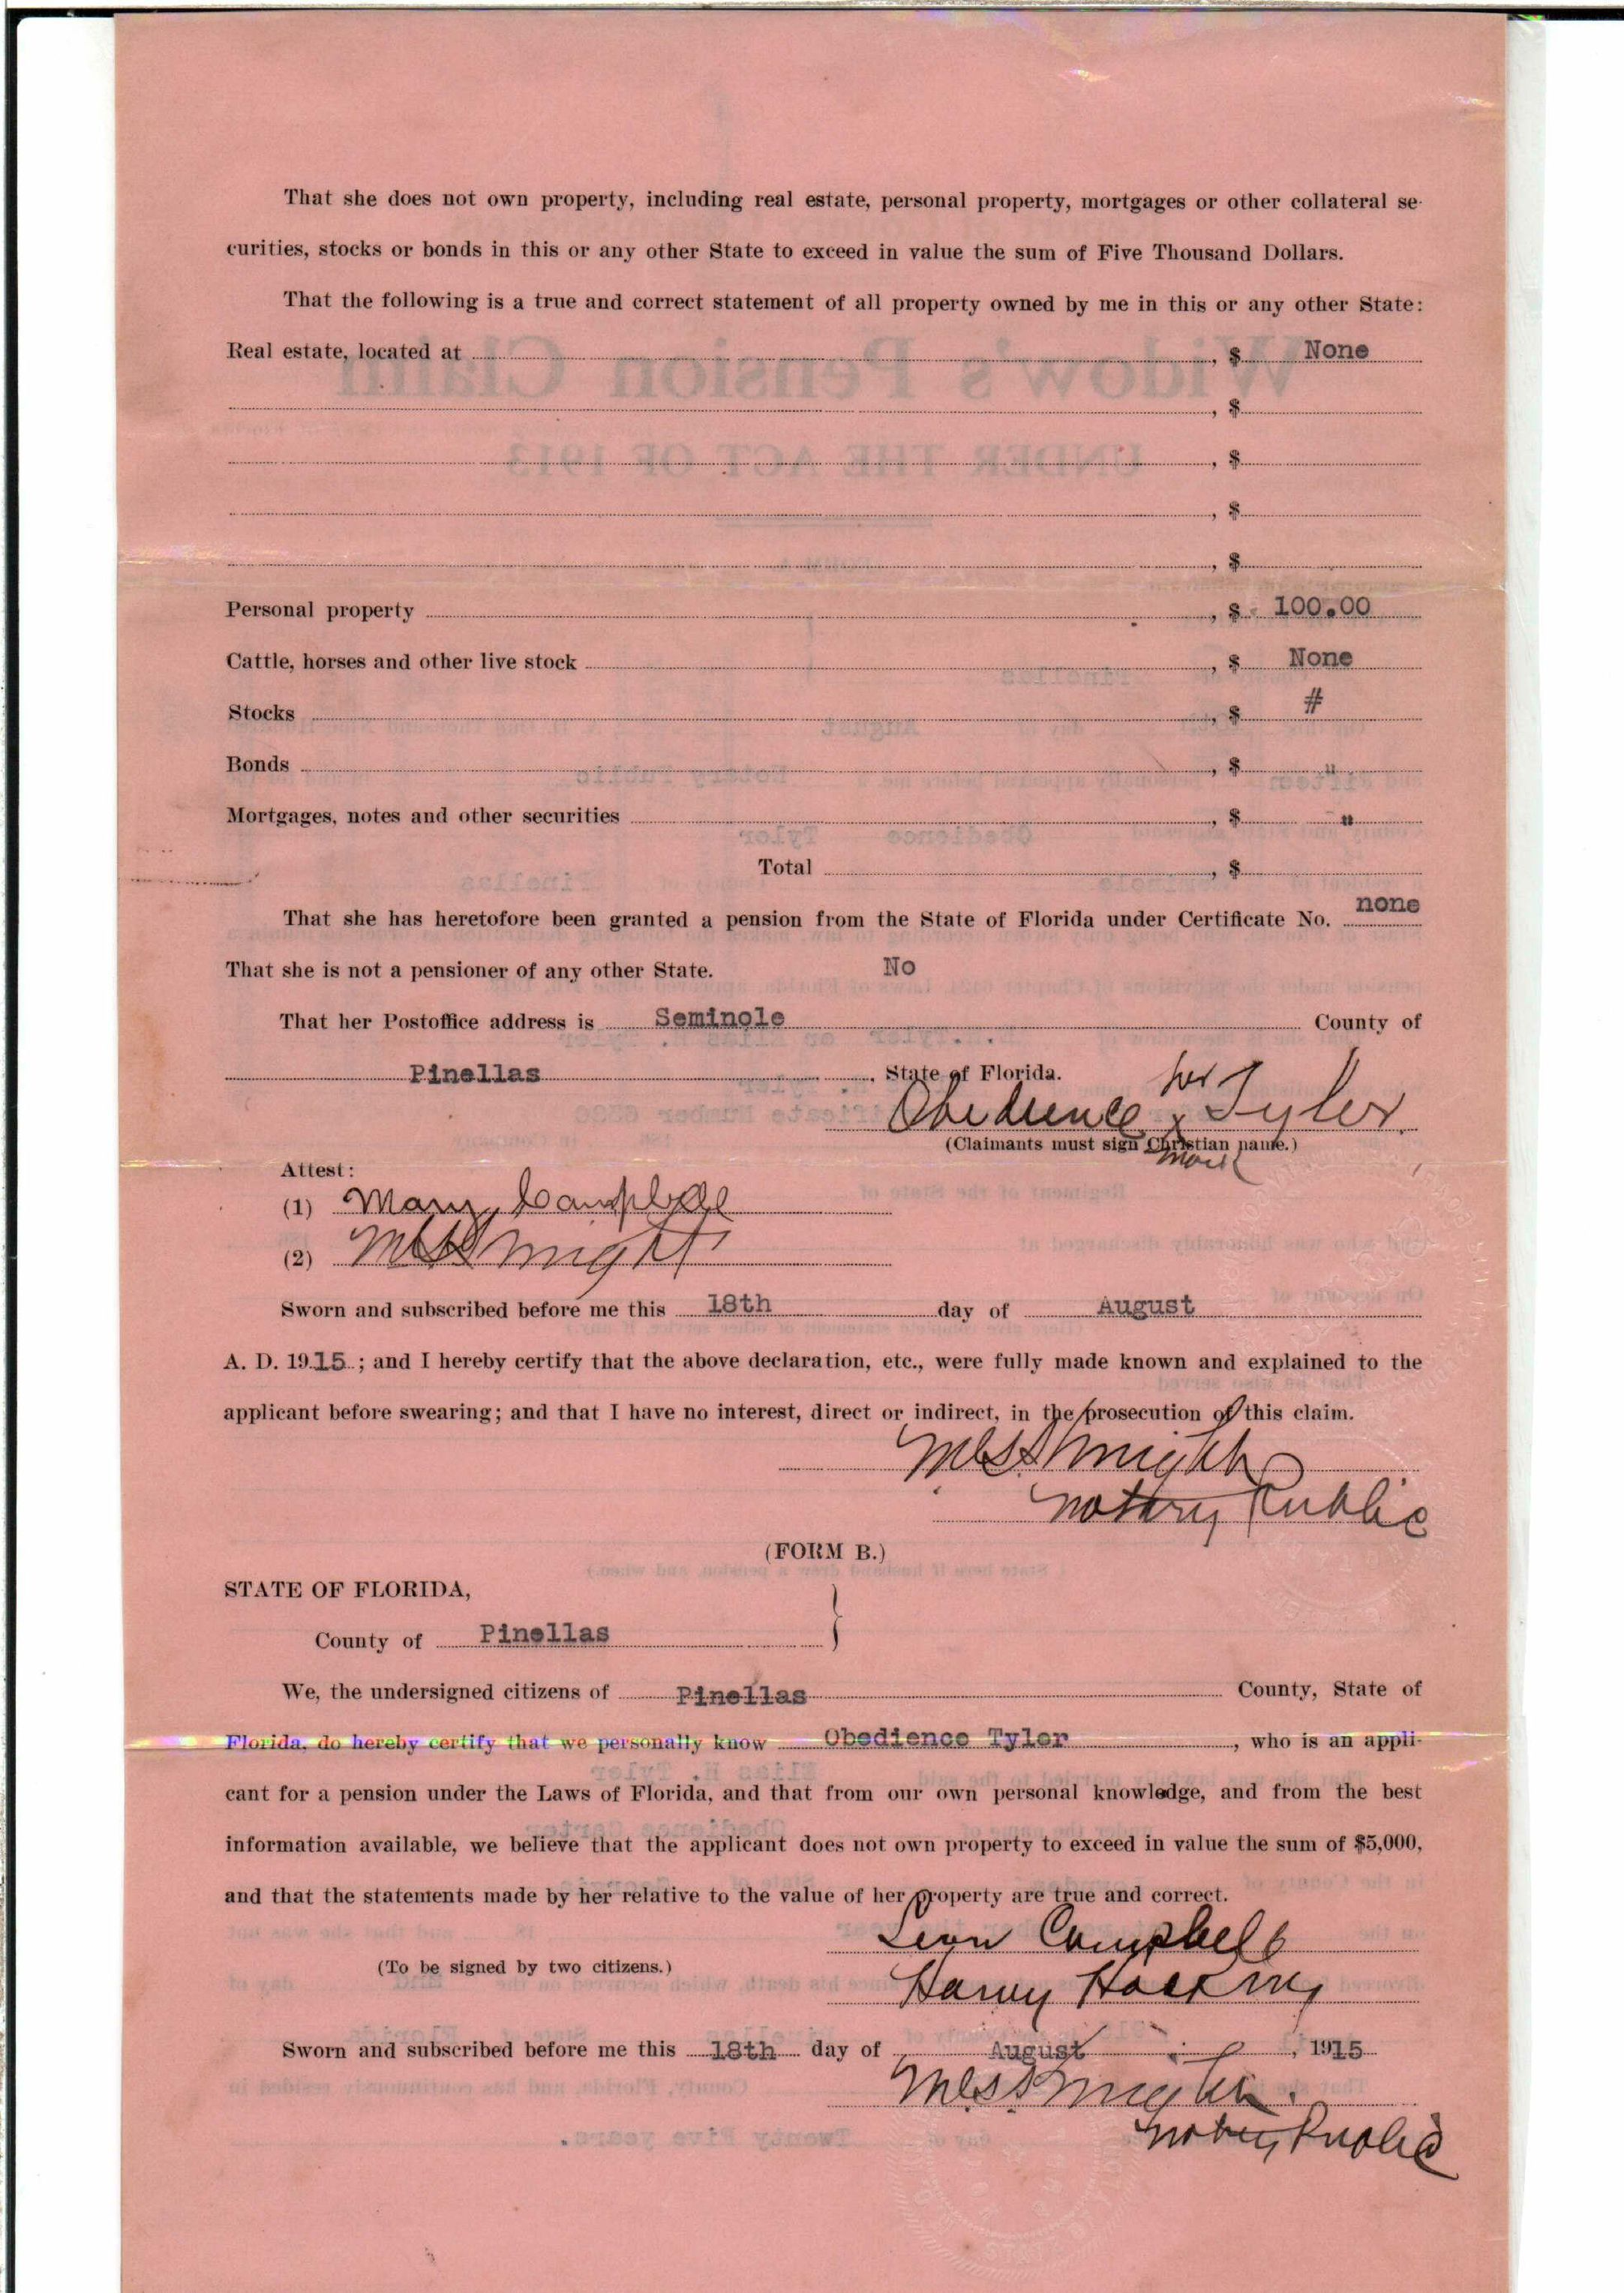 That she does not own property, including real estate, personal property, mortgages or other collateral se-
curities, stocks or bonds in this or any other State to exceed in value the sum of Five Thousand Dollars.
That the following is a true and correct statement of all property owned by me in this or any other State:
Real estate, located at , $ None
, $
, $
, $
, $
Personal property , $ 100.00
Cattle, horses and other live stock , $ None
Stocks , $ #
Bonds , $ "
Mortgages, notes and other securities , $ "
Total , $
That she has heretofore been granted a pension from the State of Florida under Certificate No. none
That she is not a pensioner of any other State. No
That her Postoffice address is Seminole County of
Pinellas , State of Florida.
her
Obedience x Tyler
(Claimants must sign Christian name.)
mark
Attest:
(1) Mary Campbell
(2)
Sworn and subscribed before me this 18th day of August
A. D. 1915 ; and I hereby certify that the above declaration, etc., were fully made known and explained to the
applicant before swearing; and that I have no interest, direct or indirect, in the prosecution of this claim.
Notary Public
(FORM B.)
STATE OF FLORIDA,
County of Pinellas
We, the undersigned citizens of Pinellas County, State of
Florida, do hereby certify that we personally know Obedience Tyler , who is an appli-
cant for a pension under the Laws of Florida, and that from our own personal knowledge, and from the best
information available, we believe that the applicant does not own property to exceed in value the sum of $5,000,
and that the statements made by her relative to the value of her property are true and correct.
Leon Campbell
(To be signed by two citizens.)
Sworn and subscribed before me this 18th day of August , 1915
Notary Public